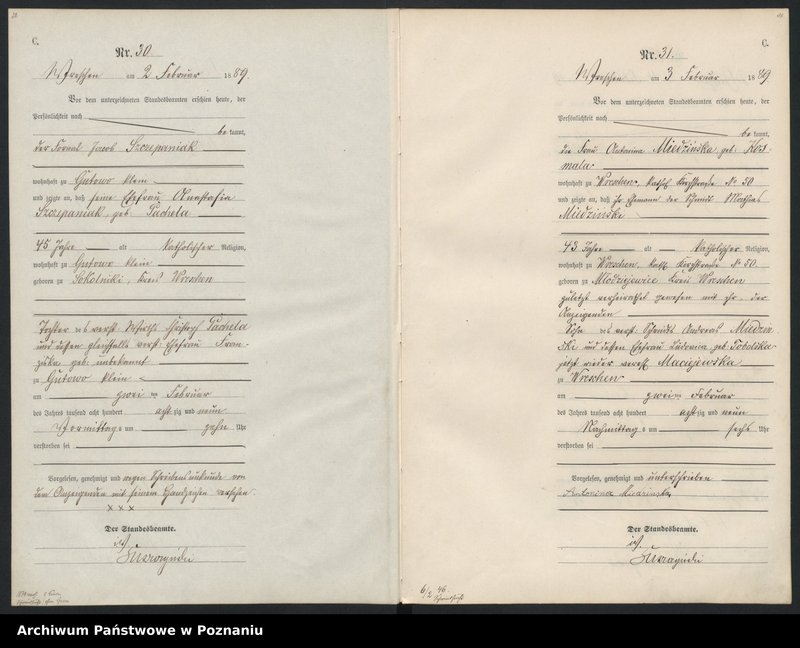 C.
Nr. 30
Wreschen am 2 Februar 1889.
Vor dem unterzeichneten Standesbeamten erschien heute, der
Persönlichkeit nach
be kannt,
der Fornal Jacob Szczepaniak
wohnhaft zu Gutowo klein
und zeigte an, daß seine Ehefrau Anastasia
Szczepaniak, geb. Pachela
45 Jahre alt katholischer Religion,
wohnhaft zu Gutowo klein
geboren zu Sokolniki, Kreis Wreschen
Tochter des verst. Wirths Pachela
und dessen gleichfalls verst. Ehefrau Fran-
ziska geb. unbekannt
zu Gutowo klein
am zwei ten Februar
des Jahres tausend acht hundert acht zig und neun
Vormittags um zehn Uhr
verstorben sei
Vorgelesen, genehmigt und wegen Schreibensunkunde von
dem Anzeigenden mit seinem Handzeichen versehen.
x x x
Der Standesbeamte.
C.
Nr. 31.
Wreschen am 3 Februar 1889
Vor dem unterzeichneten Standesbeamten erschien heute, der
Persönlichkeit nach
be kannt,
die Frau Antonina Miedzinska, geb. Kos-
mala
wohnhaft zu Wreschen, No 50
und zeigte an, daß ihr Ehemann der Schmidt Mathias
Miedzinski
43 Jahre alt katholischer Religion,
wohnhaft zu Wreschen, No 50.
geboren zu Mlodziejewice, Kreis Wreschen
zuletzt verheirathet gewesen mit ihr der
Anzeigenden
Sohn des verst. Schmidts Andreas Miedzin-
ski und dessen Ehefrau Ludovica, geb. Tobolska
jetzt wieder vereh. Maciejewska
zu Wreschen
am zwei ten Februar
des Jahres tausend acht hundert acht zig und neun
Nachmittags um sechs Uhr
verstorben sei
Vorgelesen, genehmigt und unterschrieben
Antonina Miedzinska
Der Standesbeamte.
6/2 46.
Archiwum Państwowe w Poznaniu